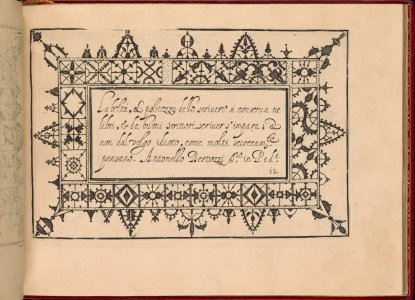 La beltà, & politezza dello scrivere si conserva ne
libri, & da buoni scrittori scriver s'impara; &
non dal vulgo idioto, come molti scioccamte
pensano. Antonello Bertozzi in Pad.
12